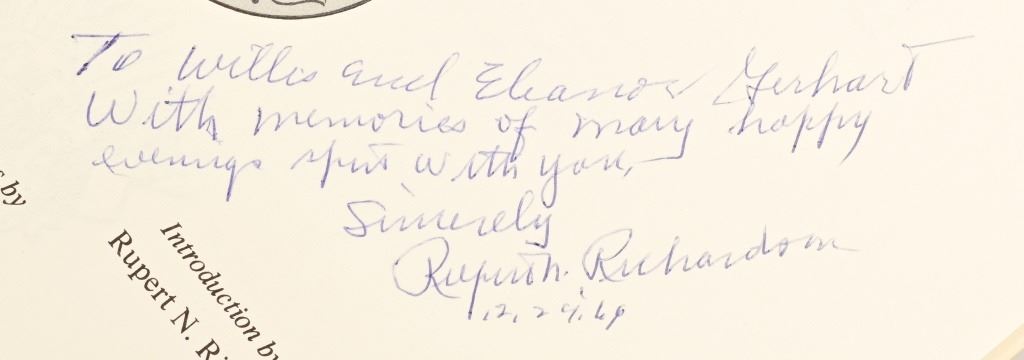 To Willis and Eleanor Gerhart
With memories of many happy
evenings spent with you,
Sincerely
Rupert N. Richardson
12.29.69
s by
Introduction by
Rupert N. Ri